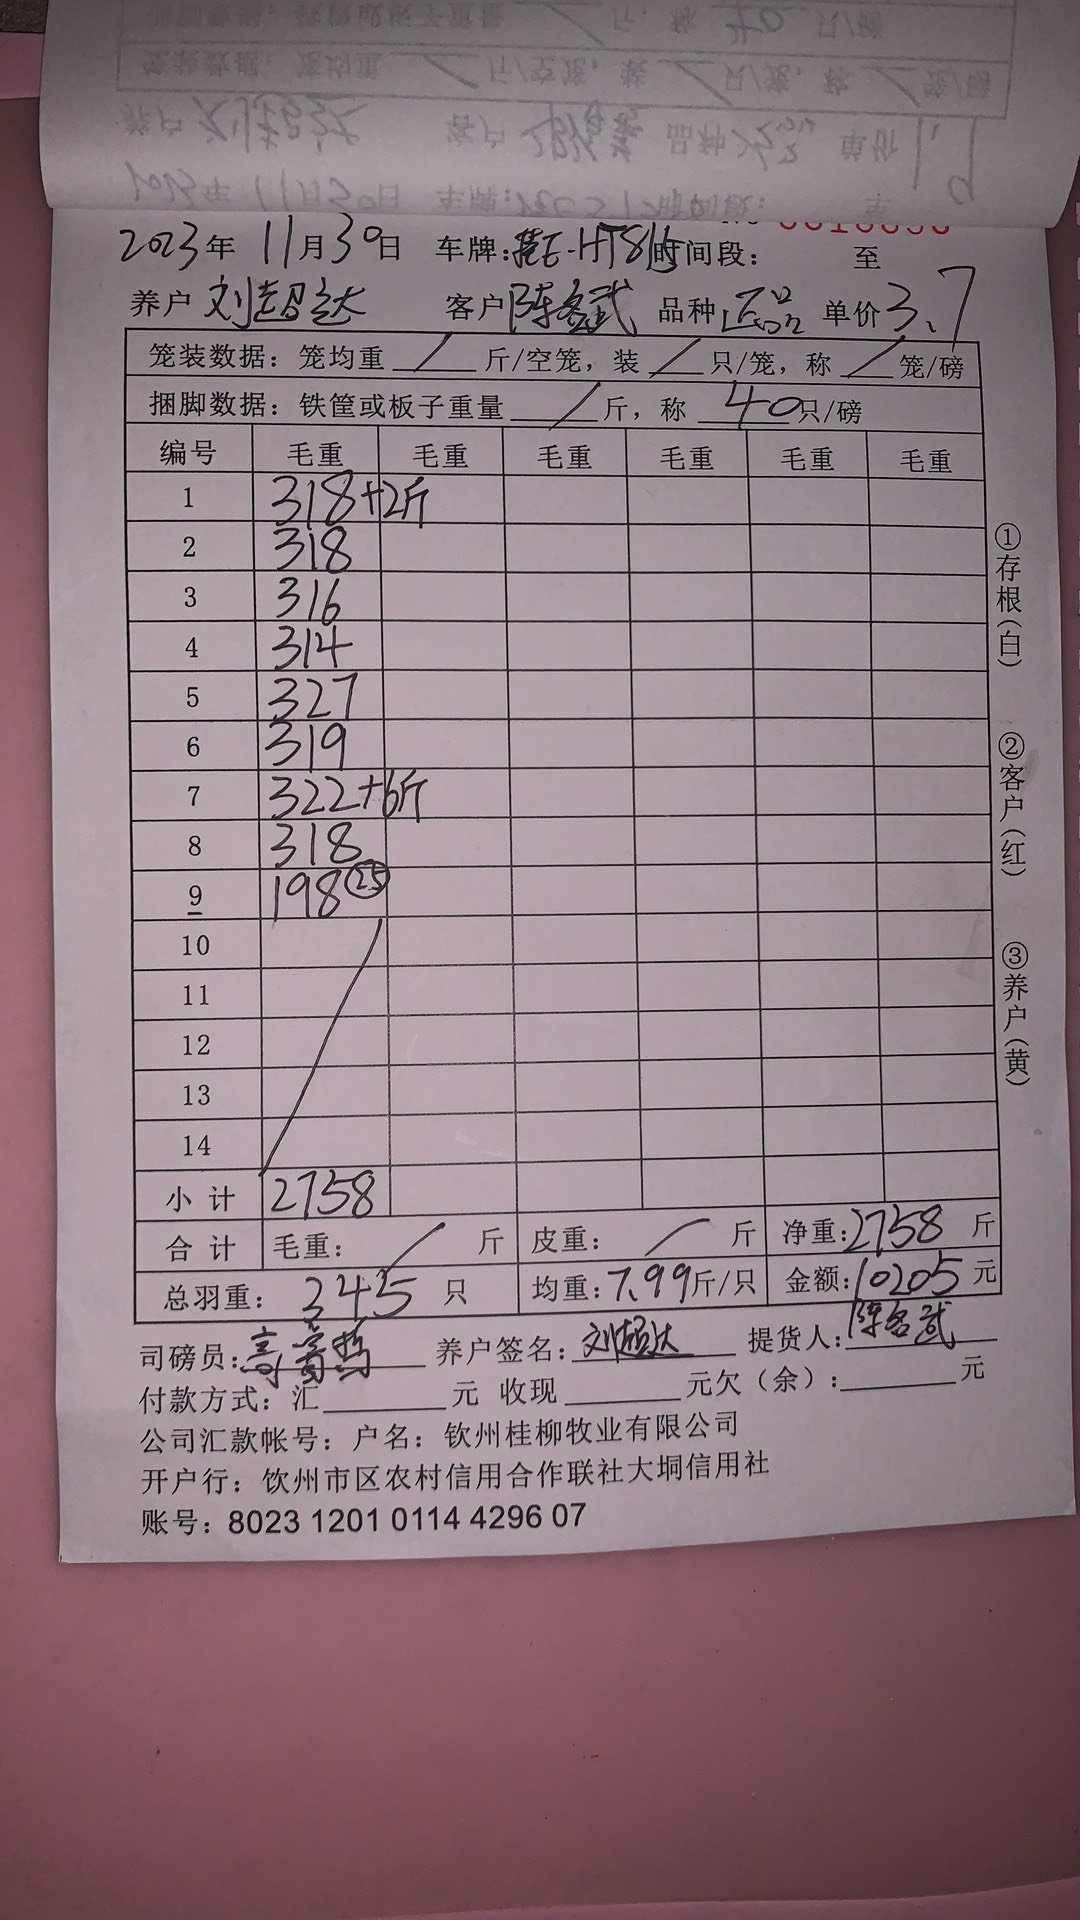 2023年 11月30日 车牌:桂E-HT816时间段: 至
养户 刘超达 客户 陈名武 品种 正品 单价 3.7
笼装数据: 笼均重 / 斤/空笼, 装 / 只/笼, 称 / 笼/磅
捆脚数据: 铁筐或板子重量 / 斤, 称 40 只/磅
编号 毛重 毛重 毛重 毛重 毛重 毛重
1 318+2斤
2 318
3 316
4 314
5 327
6 319
7 322+6斤
8 318
9 198 (25)
10
11
12
13
14
小 计 2758
合 计 毛重: / 斤 皮重: / 斤 净重:2758 斤
总羽重: 345 只 均重:7.99斤/只 金额:10205 元
司磅员: 养户签名:刘超达 提货人:陈名武
付款方式: 汇 元 收现 元欠(余): 元
公司汇款帐号: 户名: 钦州桂柳牧业有限公司
开户行: 钦州市区农村信用合作联社大垌信用社
账号: 8023 1201 0114 4296 07
①存根(白)
②客户(红)
③养户(黄)